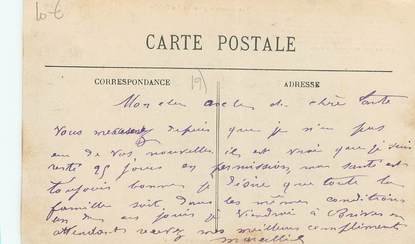 10-€
CARTE POSTALE
CORRESPONDANCE
19
ADRESSE
Mon cher oncle et chère tante
Vous depuis que je n'ai pas
eu de vos nouvelles il est vrai que je suis
resté 25 jours en permission, ma santé est
toujours bonne je désire que toute la
famille soit dans les mêmes conditions
un de ces jours je viendrai à
attendant recevez mes meilleurs compliments